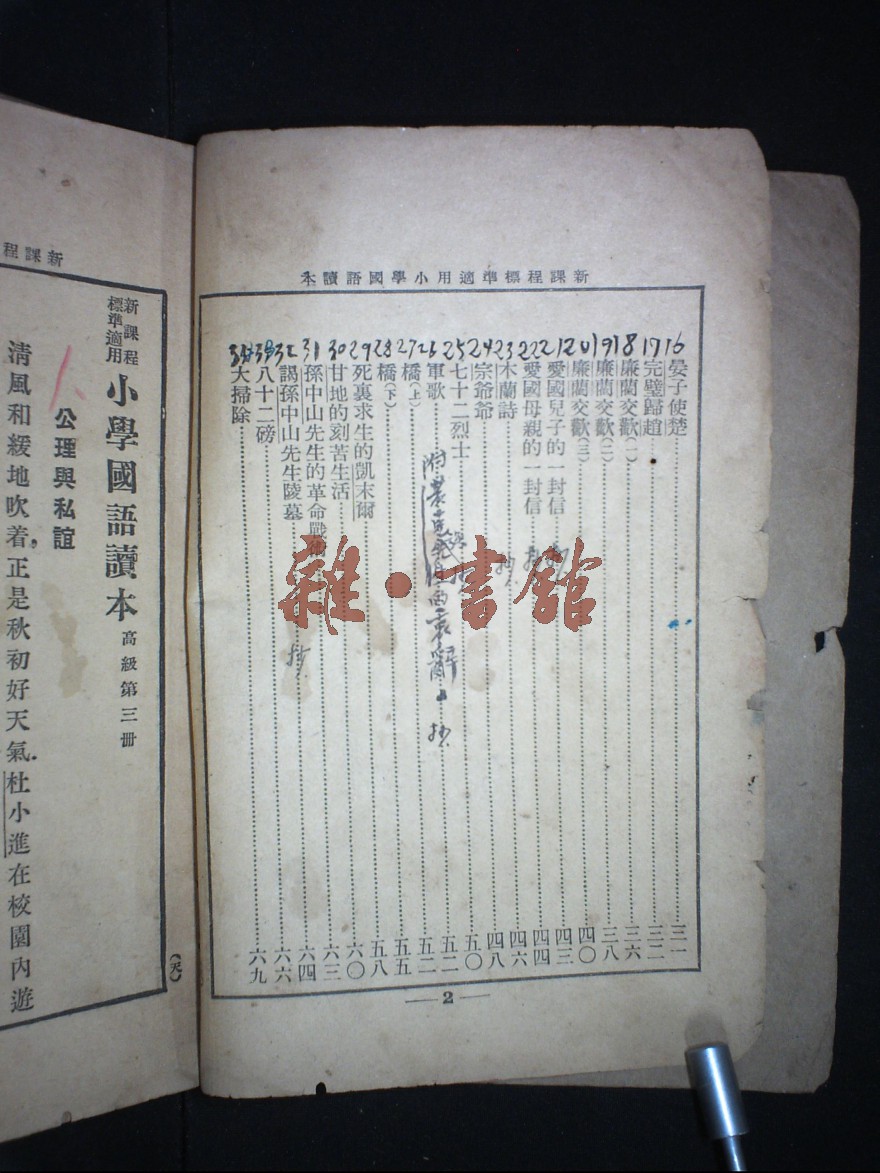 新課程標準適用小學國語讀本
16 晏子使楚 三一
17 完璧歸趙 三二
18 廉藺交歡(一) 三六
19 廉藺交歡(二) 三八
20 廉藺交歡(三) 四〇
愛國兒子的一封信 四三
22 愛國母親的一封信 四四
23 木蘭詩 抄 四六
24 宗爺爺 四八
25 七十二烈士 五〇
26 軍歌 五二
27 橋(上) 五二
28 橋(下) 五五
29 死裏求生的凱末爾 五八
30 甘地的刻苦生活 六〇
31 孫中山先生的革命戰術 六三
32 謁孫中山先生陵墓 抄 六四
八十二磅 六六
大掃除 六九
2
雜·書館
新課程
新課程標準適用 小學國語讀本 高級第三册
公理與私誼
清風和緩地吹着,正是秋初好天氣.杜小進在校園內遊